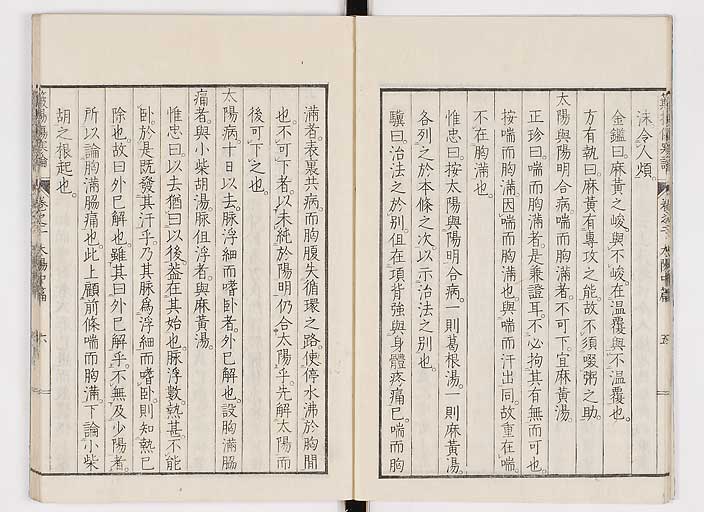 沫令人煩
金鑑曰。麻黃之峻。與不峻。在温覆與不温覆也。
方有執曰。麻黃有專攻之能。故不須啜粥之助。
太陽與陽明合病。喘而胸滿者。不可下。宜麻黃湯。
正珍曰。喘而胸滿者。是兼證耳。不必拘其有無而可也。
按喘而胸滿。因喘而胸滿也。與喘而汗出同。故重在喘。
不在胸滿也。
惟忠曰。按太陽與陽明合病。一則葛根湯。一則麻黃湯。
各列之於本條之次。以示治法之別也。
驥曰。治法之於別。但在項背強與身體疼痛已。喘而胸
滿者。表裏共病。而胸腹失循環之路。使停水沸於胸間
也。不可下者。以未純於陽明。仍合太陽乎。先解太陽而
後可下之也。
太陽病十日以去。脉浮細而嗜卧者。外已解也。設胸滿脇
痛者。與小柴胡湯。脉但浮者。與麻黃湯。
惟忠曰。以去猶曰以後。葢在其始也。脉浮數。熱甚。不能
卧。於是既發其汗乎。乃其脉爲浮細而嗜卧。則知熱已
除也。故曰外已解也。雖其曰外已解乎。不無及少陽者。
所以論胸滿脇痛也。此上顧前條喘而胸滿。下論小柴
胡之根起也。
卷之二 太陽中篇 五
太陽中篇 六